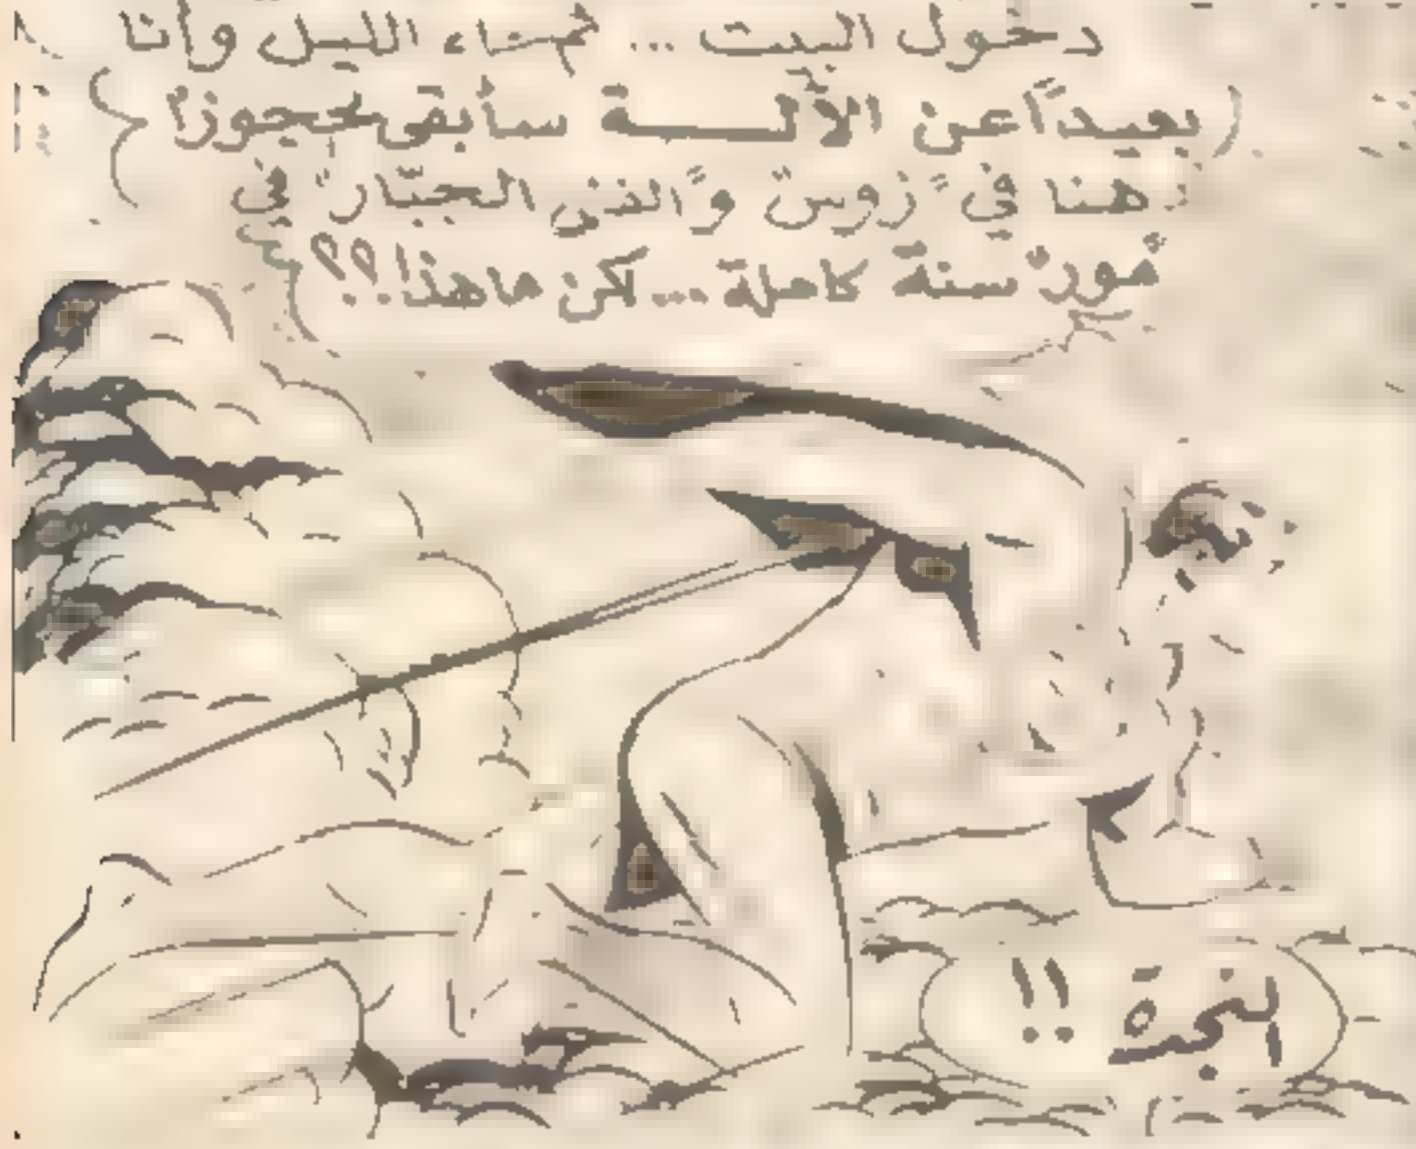 دخول البيت ... ثم جاء الليل وأنا
بعيداً عن الآلــة سأبقى محجوزاً
هنا في "زوس" و"الفنى الجبّار" في
سنة كاملة ... لكن ماهذا!؟؟
النجدة !!